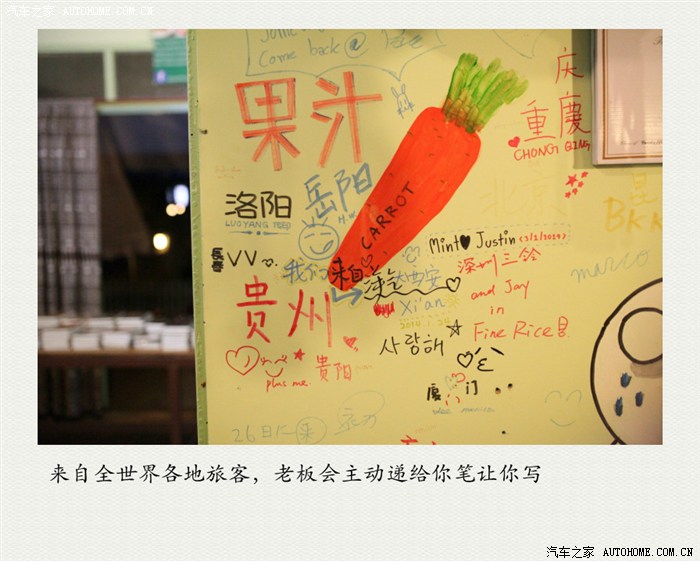 汽车之家 AUTOHOME.COM.CN
Come back @
果汁
庆
重庆
CHONG QING
岳阳
洛阳
LUOYANG
CARROT
BKK
Mint Justin (3/2/2014)
長春
VV
我们来自
西安
Xi'an
深圳三铃
and Jay
in
Fine Rice
marco
贵州
사랑해
plus me
贵阳
厦门
26日
来自全世界各地旅客，老板会主动递给你笔让你写
汽车之家 AUTOHOME.COM.CN